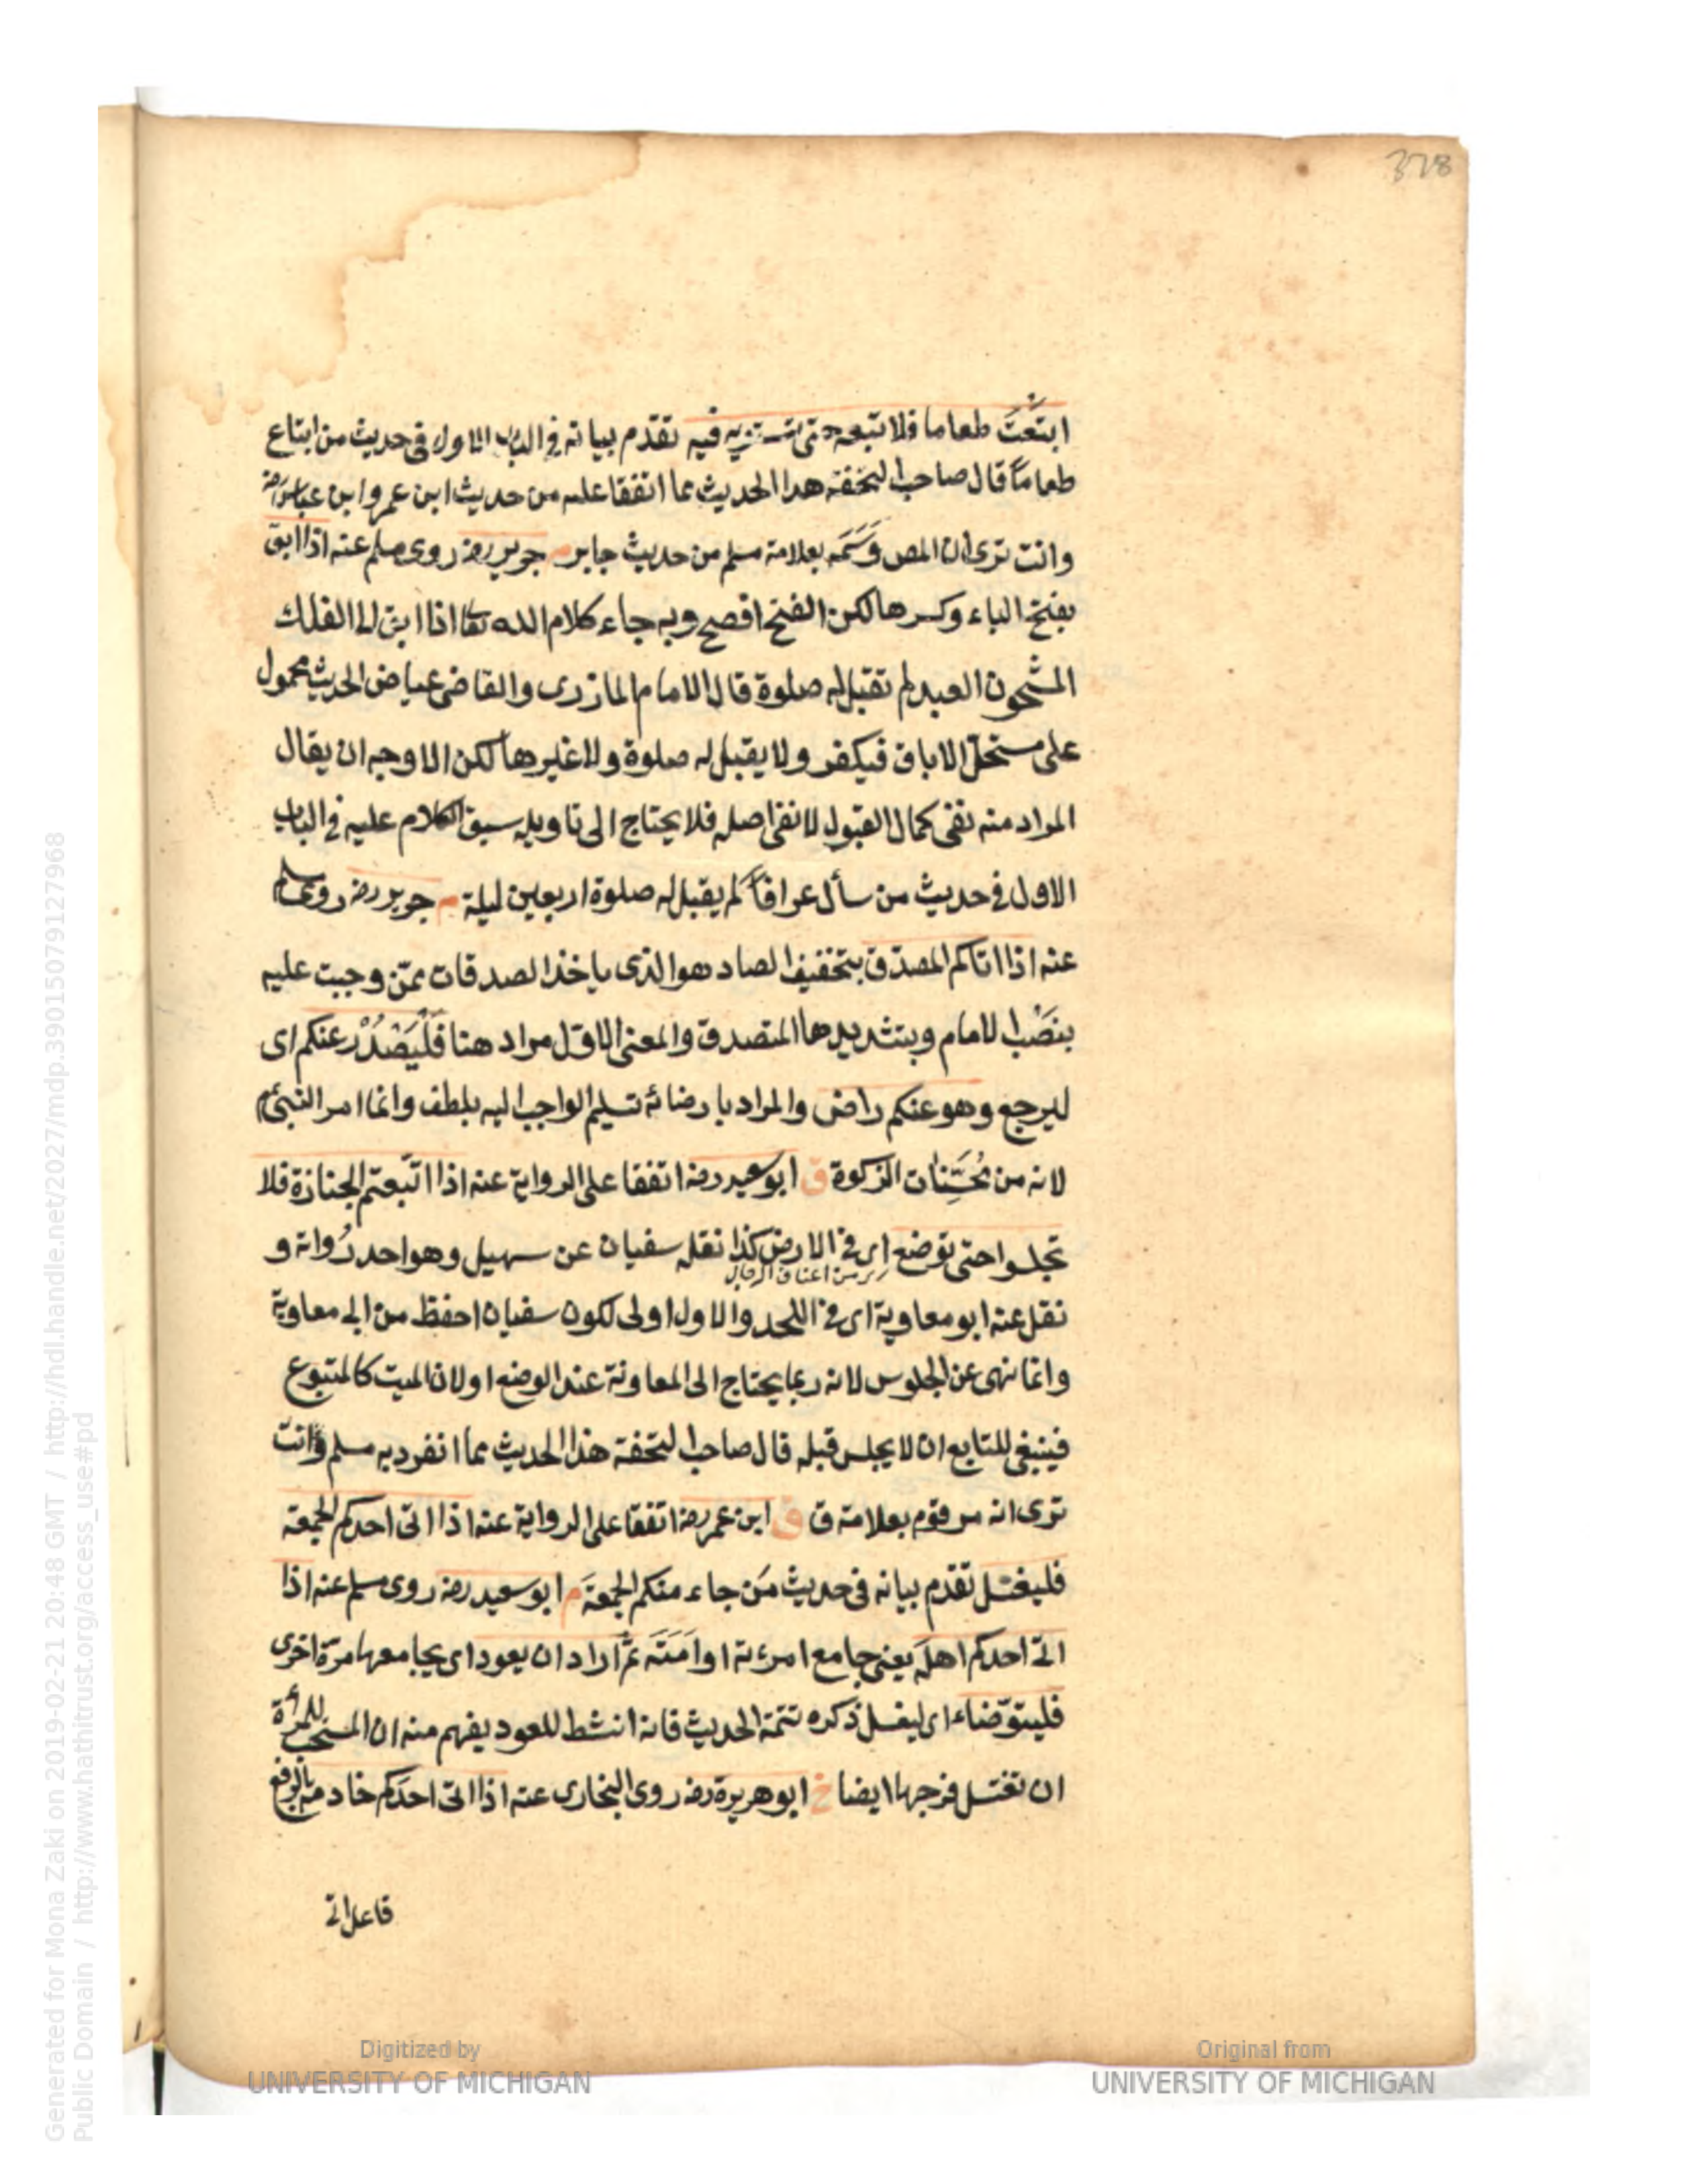 328
ابتَعْتَ طعاما فلا تبعه حتى تستوفيه فيه تقدم بيانه في الباب الاول في حديث من ابتاع
طعاماً قال صاحب التحفة هذا الحديث مما اتفقا عليه من حديث ابن عمر وابن عباس رضه
وانت ترى ان المص وَسَمَه بعلامة مسلم من حديث جابر م جرير رضه روى مسلم عنه اذا ابق
بفتح الباء وكسرها لكن الفتح افصح وبه جاء كلام الله تعا اذا ابق الى الفلك
المشحون العبد لم تقبل له صلوة قال الامام المازرى والقاضى عياض الحديث محمول
على مستحلّ الاباق فيكفر ولا يقبل له صلوة ولا غيرها لكن الاوجه ان يقال
المراد منه نفى كمال القبول لا نفى اصله فلا يحتاج الى تاويله سبق الكلام عليه في الباب
الاول في حديث من سأل عرافاً لم يقبل له صلوة اربعين ليلة م جرير رضه روى مسلم
عنه اذا اتاكم المصدّق بتخفيف الصاد هو الذى ياخذ الصدقات ممّن وجبت عليه
بنَصْب الامام وبتشديدها المتصدق والمعنى الاوّل مراد هنا فَلْيَصْدُرْ عنكم اى
ليرجع وهو عنكم راض والمراد بارضائه تسليم الواجب اليه بلطف وانما امر النبى م
لانه من مُحَسِّنات الزكوة ق ابو سعيد رضه اتفقا على الرواية عنه اذا اتّبعتم الجنازة فلا
تجلسوا حتى توضع اى في الارض كذا نقله سفيان عن سهيل وهو احد رُواته و
من اعناق الرجال
نقل عنه ابو معاوية اى في اللحد والاول اولى لكون سفيان احفظ من ابى معاوية
وانما نهى عن الجلوس لانه ربما يحتاج الى المعاونة عند الوضع او لان الميت كالمتبوع
فينبغى للتابع ان لا يجلس قبله قال صاحب التحفة هذا الحديث مما انفرد به مسلم وانت
ترى انه مرقوم بعلامة ق ق ابن عمر رضه اتفقا على الرواية عنه اذا اتى احدكم الجمعة
فليغتسل تقدم بيانه في حديث مَن جاء منكم الجمعةَ م ابو سعيد رضه روى مسلم عنه اذا
اتى احدكم اهلَه يعنى جامع امرءته او اَمَتَه ثمَّ اراد ان يعود اى يجامعها مرّة اخرى
فليتوّضاء اى ليغسل ذكره تتمة الحديث فانه انشط للعود يفهم منه ان المستحب للمرأة
ان تغتسل فرجها ايضا خ ابو هريرة رضه روى البخارى عنه اذا اتى احدَكم خادمه بالرفع
فاعل اتى
Generated for Mona Zaki on 2019-02-21 20:48 GMT / http://hdl.handle.net/2027/mdp.39015079127968
Public Domain / http://www.hathitrust.org/access_use#pd
Digitized by
UNIVERSITY OF MICHIGAN
Original from
UNIVERSITY OF MICHIGAN